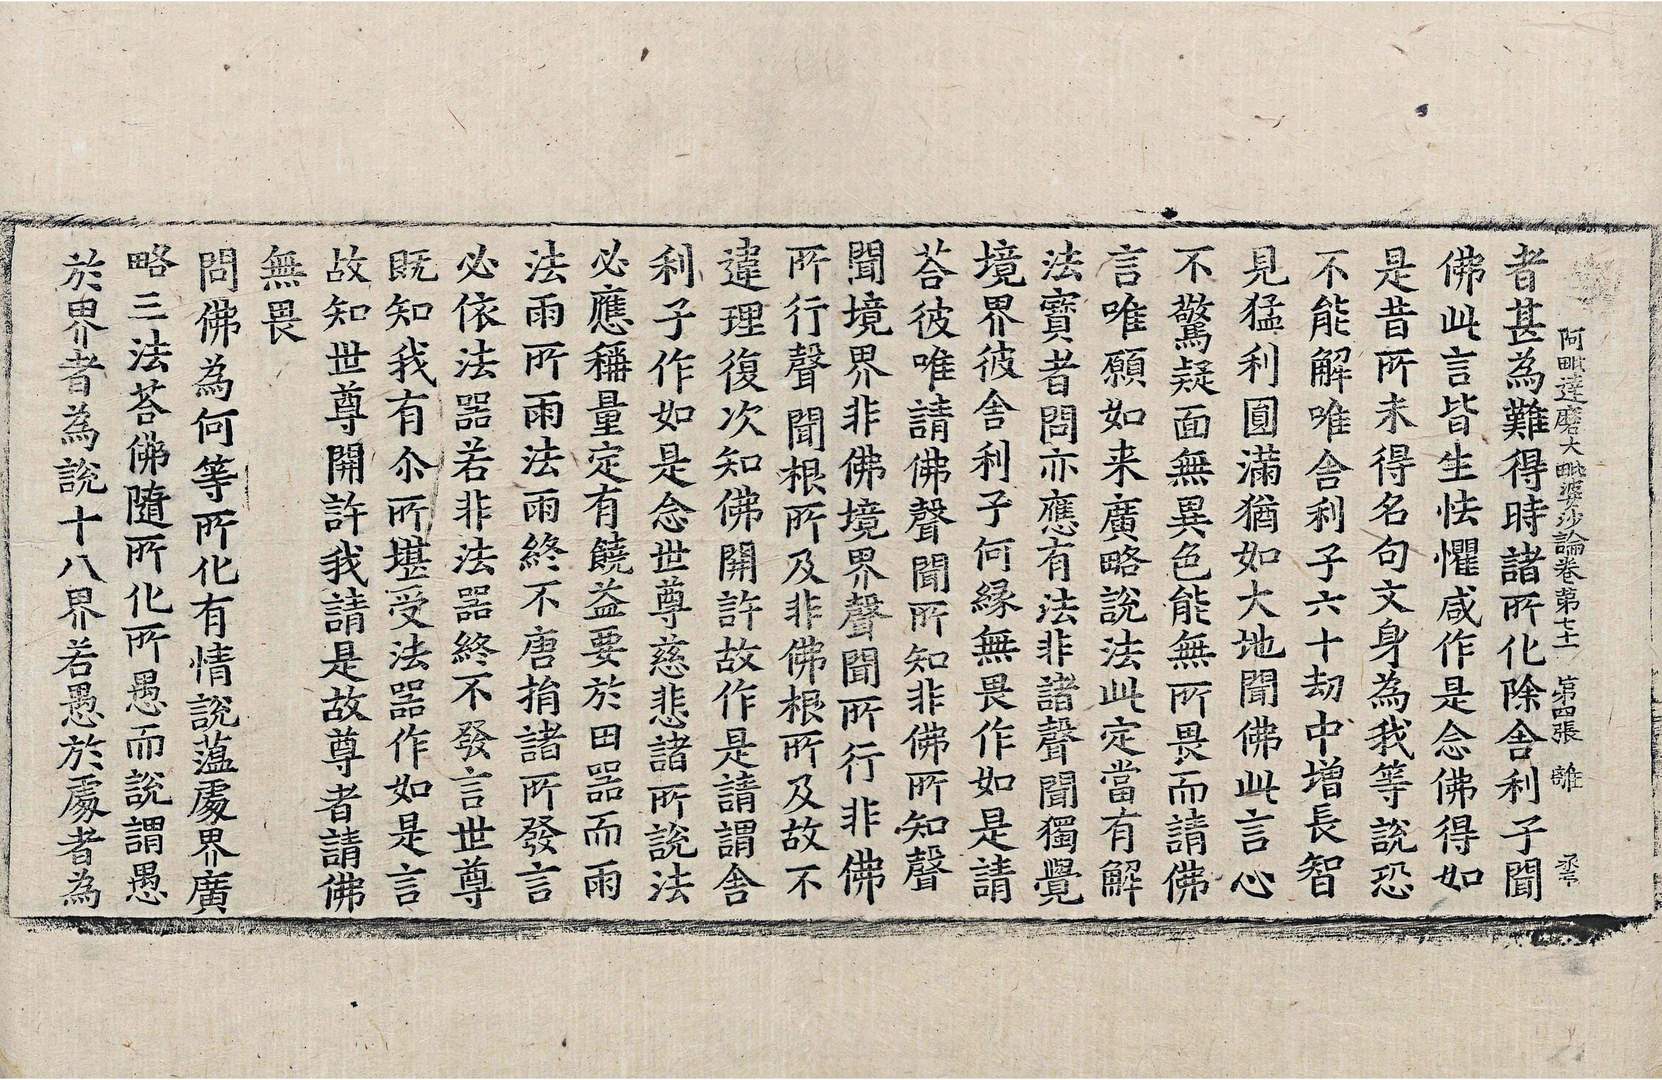 阿毗達磨大毗婆沙論卷第七十一　第四張　離
者甚為難得時諸所化除舍利子聞
佛此言皆生怯懼咸作是念佛得如
是昔所未得名句文身為我等說恐
不能解唯舍利子六十劫中增長智
見猛利圓滿猶如大地聞佛此言心
不驚疑面無異色能無所畏而請佛
言唯願如来廣略說法此定當有解
法寶者問亦應有法非諸聲聞獨覺
境界彼舍利子何緣無畏作如是請
荅彼唯請佛聲聞所知非佛所知聲
聞境界非佛境界聲聞所行非佛
所行聲聞根所及非佛根所及故不
違理復次知佛開許故作是請謂舍
利子作如是念世尊慈悲諸所說法
必應稱量定有饒益要於田器而雨
法雨所雨法雨終不唐捐諸所發言
必依法器若非法器終不發言世尊
既知我有尒所堪受法器作如是言
故知世尊開許我請是故尊者請佛
無畏
問佛為何等所化有情說薀處界廣
略三法荅佛隨所化所愚而說謂愚
於界者為說十八界若愚於處者為